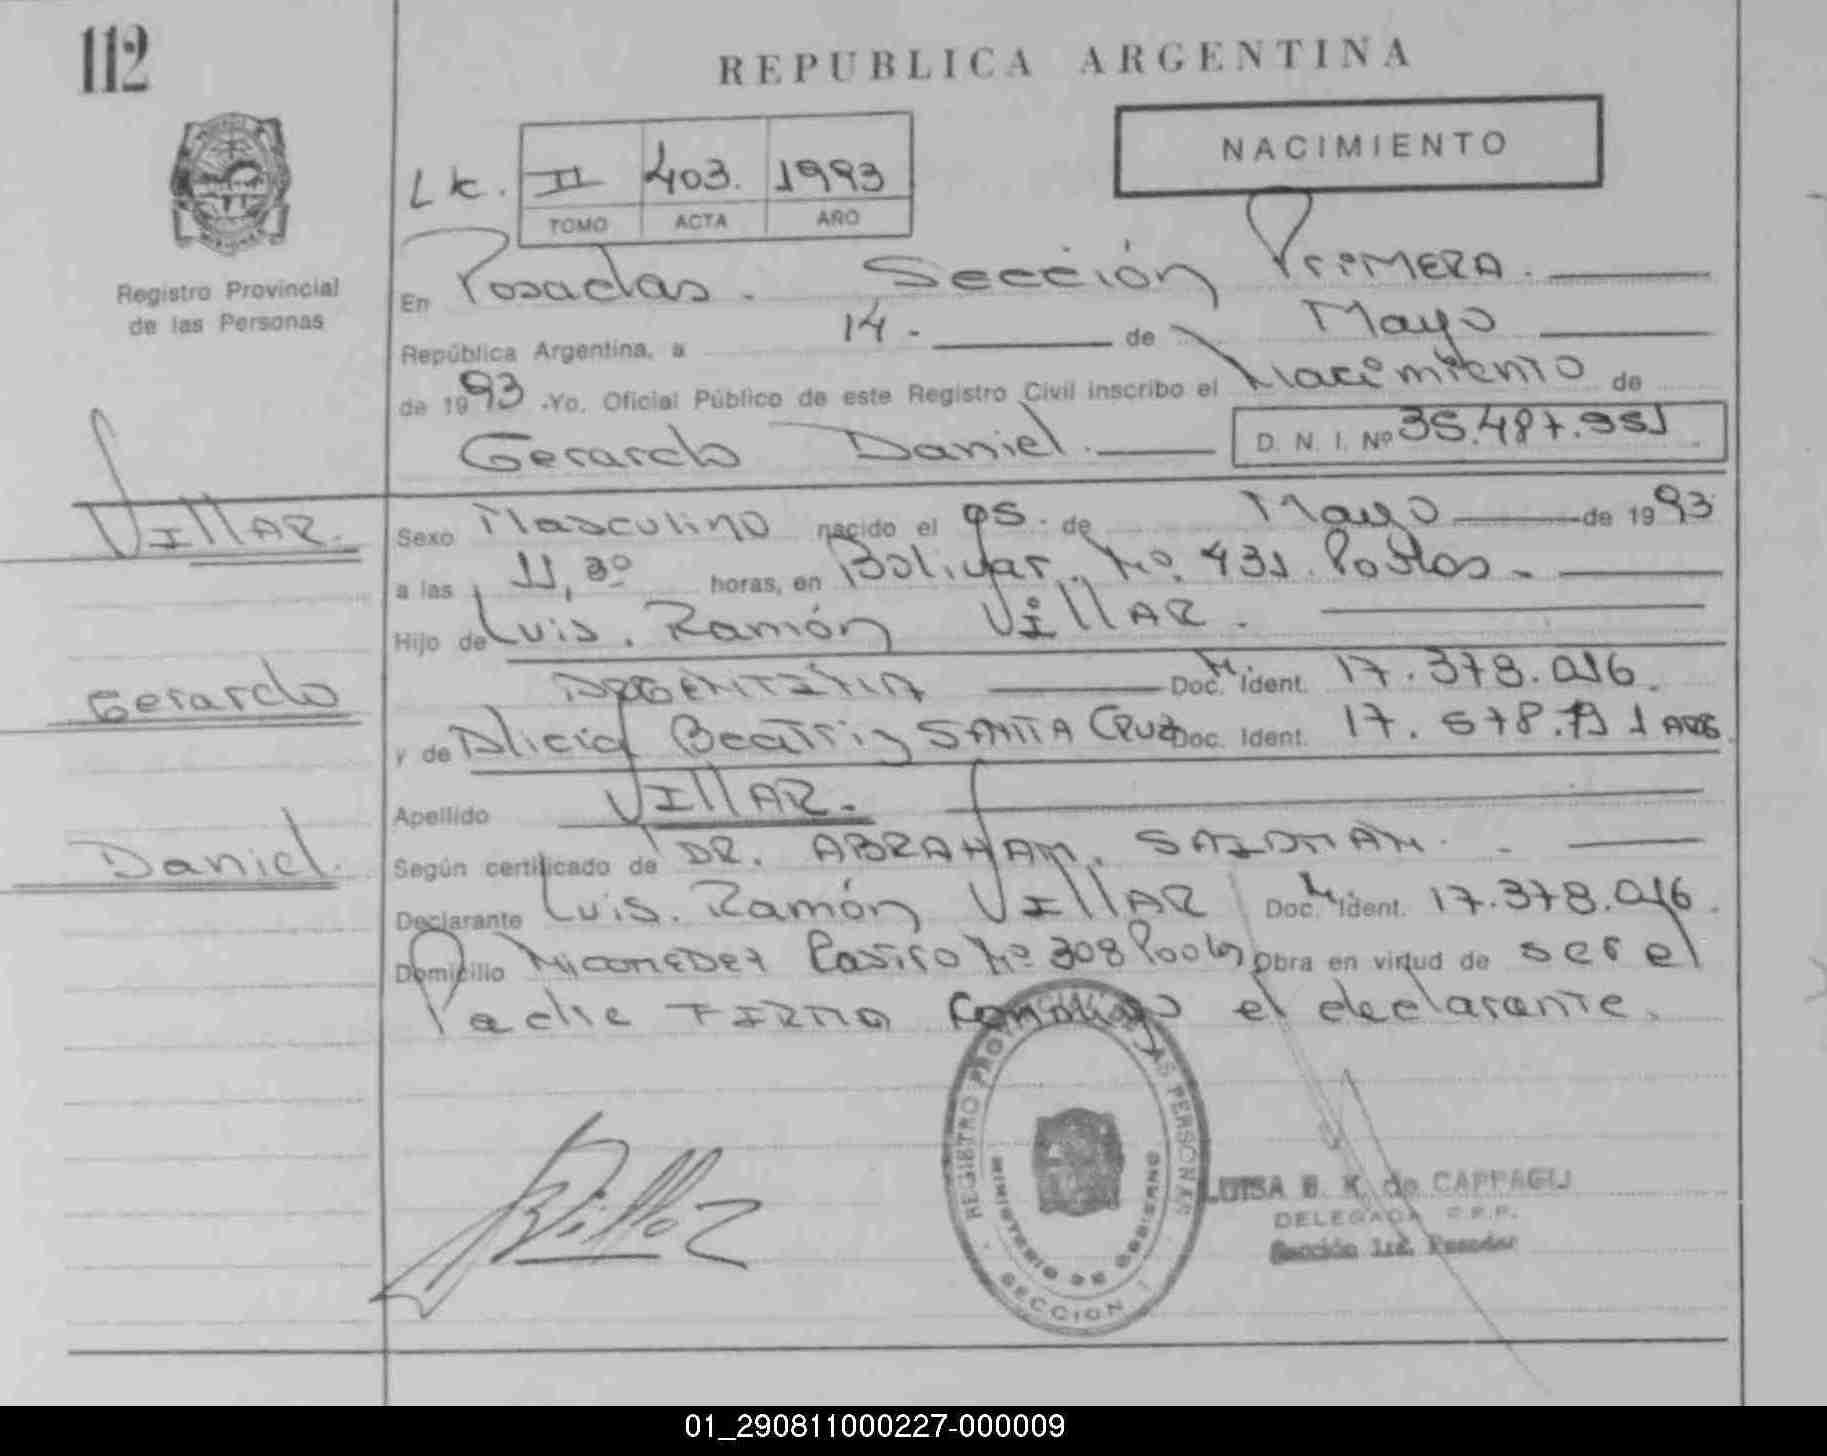 112
REPUBLICA ARGENTINA
NACIMIENTO
II 403. 1993
TOMO ACTA AÑO
Registro Provincial
de las Personas
En Posadas. Sección PRIMERA.
República Argentina, a 14. de Mayo
de 1993. Yo, Oficial Público de este Registro Civil inscribo el Nacimiento de
Gerardo Daniel. D. N. I. Nº 35.487.951
VILLAR.
Gerardo
Daniel.
Sexo Masculino nacido el 05. de Mayo de 1993
a las 11,30 horas, en Bolivar. Nº. 431.
Hijo de Luis. Ramón VILLAR.
ARGENTINA Doc. Ident. 17.378.016.
y de Alicia Beatriz SANTA CRUZ Doc. Ident. 17.578.791 ARG
Apellido VILLAR.
Según certificado de DR. ABRAHAM.
Declarante Luis. Ramón VILLAR Doc. Ident. 17.378.016.
Domicilio Nº 308 Obra en virtud de ser el
Padre FIRMA Conmigo el declarante.
REGISTRO PROVINCIAL DE LAS PERSONAS
MINISTERIO DE GOBIERNO
SECCION 1
LUISA B. K. de
DELEGADA R.P.P.
Sección 1ra. Posadas
01_290811000227-000009